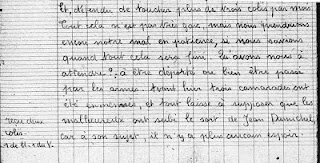 Et, défendu de toucher plus de trois colis par mois.
Tout cela n'est pas très gai, mais nous prendrions
encore notre mal en patience, si nous savions
quand tout cela sera fini. Qu'avons nous à
attendre? à être déporté ou bien être passé
par les armes. Avant hier trois camarades ont
été emmenés et tout laisse à supposer que les
malheureux ont subi le sort de Jean
car à son sujet, il n'y a plus aucun espoir.
reçu deux
colis